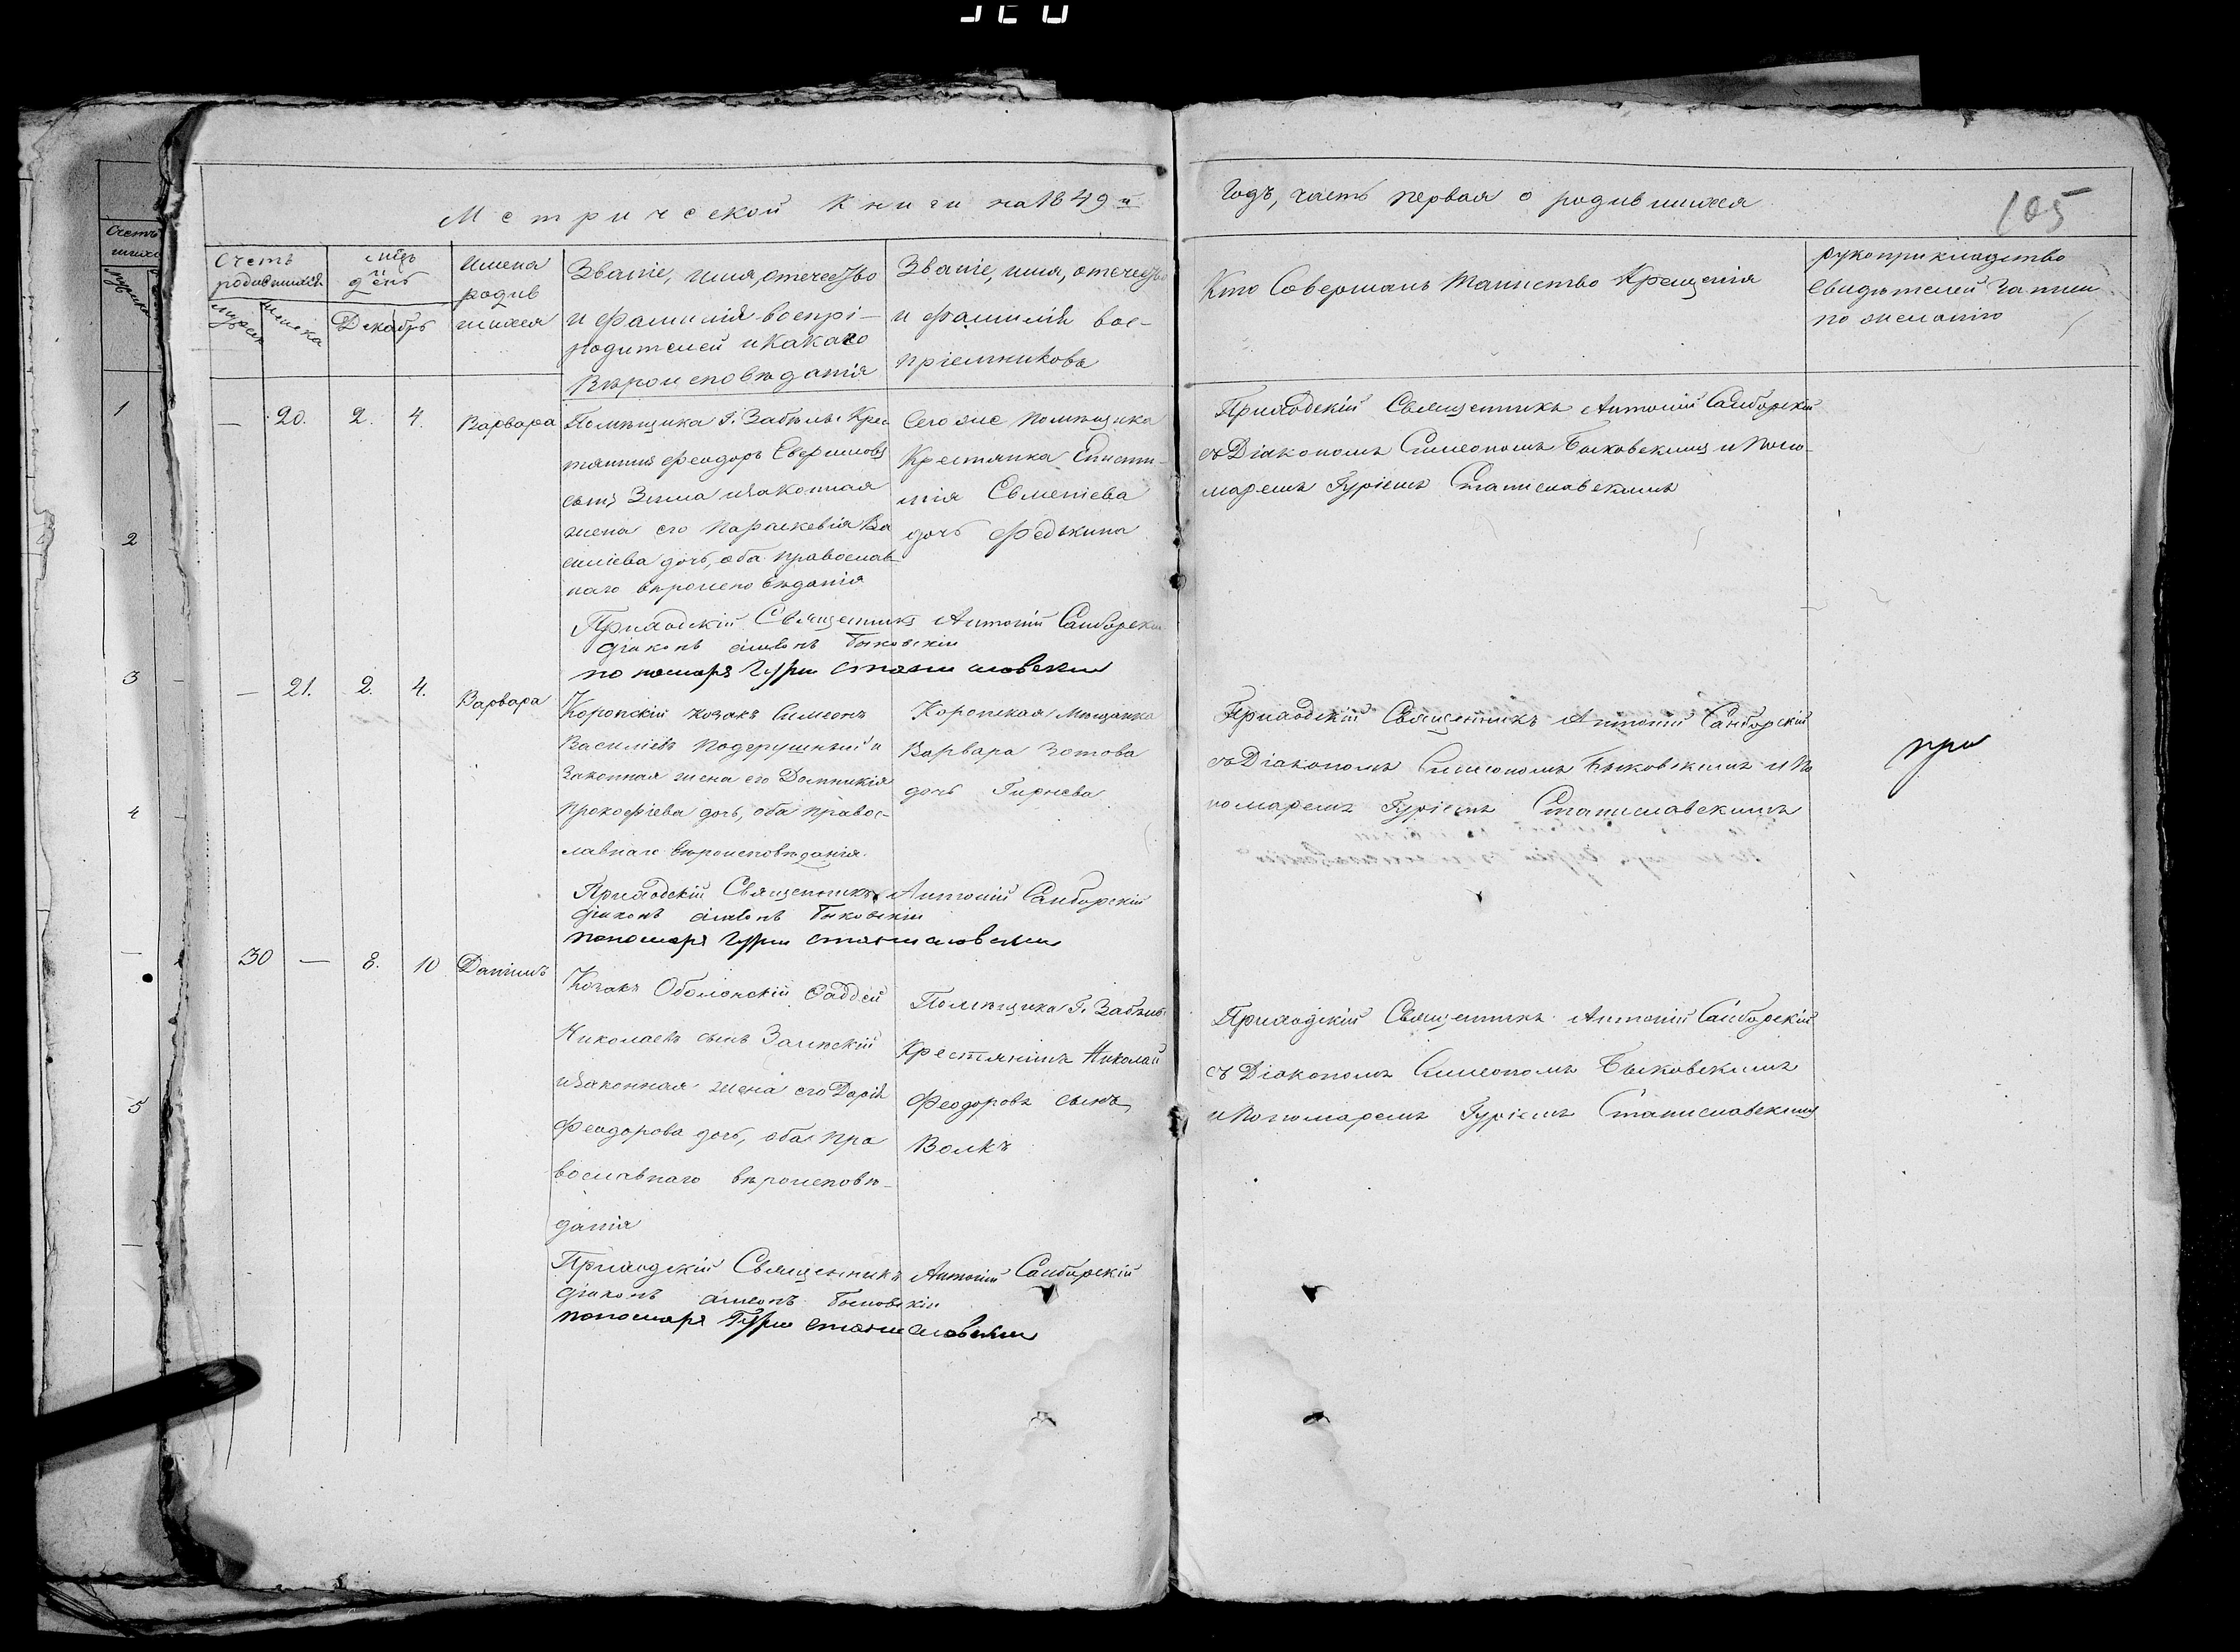 Метрической Книги на 1849й
Годъ, часть первая о родившихся
105
Счетъ родившихся
мужеск
женска
мцъ
день
Декабрь
Имена
родив
шихся
Званіе, имя, отечество
и фамилія воспрі-
родителей и какаго
Вѣроисповѣданія
Званіе, имя, отечество
и фамилія вос-
пріемниковъ
Кто Совершалъ Таинство Крещенія
рукоприкладство
Свидѣтелей
по желанію
— 20. 2. 4. Варвара
Помѣщика Г. Забѣлы Крес
тянинъ Феодоръ
сынъ Зима и законная
жена его Параскевія Ва
силіева дочь, оба православ
наго вѣроисповѣданія
Сего же Помѣщика
Крестянка Еписти-
мія Евменіева
дочь Федькина
Приходскій Священникъ Антоній Самборскій
съ Діакономъ Симеономъ Быковскимъ и Поно-
маремъ Гуріемъ Станиславскимъ
Приходскій Священникъ Антоній Самборскій
діаконъ Быковскій
пономаръ Гурій Станиславскій
— 21. 2. 4. Варвара
Коропскій козакъ Симеонъ
Василіевъ и
Законная жена его Домникія
Прокофіева дочь, оба правос-
лавнаго вѣроисповѣданія.
Коропская Мѣщанка
Варвара Зотова
дочь
Приходскій Священникъ Антоній Самборскій
съ Діакономъ Симеономъ Быковскимъ и По
номаремъ Гуріемъ Станиславскимъ
при
Приходскій Священникъ Антоній Самборскій
діаконъ Быковскій
пономаръ Гурій Станиславскій
30 — 8. 10 Даніилъ
Козакъ Оболонскій Фаддей
Николаевъ сынъ
и законная жена его Дарія
Феодорова дочь, оба пра
вославнаго вѣроисповѣ-
данія
Помѣщика Г. Забѣлы
Крестянинъ Николай
Феодоровъ сынъ
Волкъ
Приходскій Священникъ Антоній Самборскій
съ Діакономъ Симеономъ Быковскимъ
и Пономаремъ Гуріемъ Станиславскимъ
Приходскій Священникъ Антоній Самборскій
діаконъ Быковскій
пономаръ Гурій Станиславскій
1
2
3
4
—
5
—